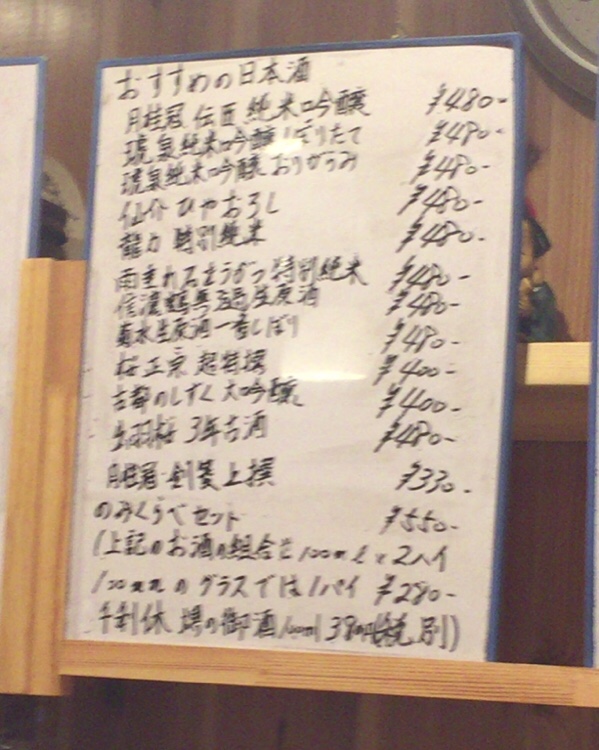 おすすめの日本酒
月桂冠 伝匠 純米吟醸 ¥480-
琥泉純米吟醸 しぼりたて ¥480-
琥泉純米吟醸 おりがらみ ¥480-
仙介 ひやおろし ¥480-
龍力 特別純米 ¥480-
雨垂れ石をうがつ 特別純米 ¥480-
信濃鶴 無ろ過生原酒 ¥480-
菊水生原酒一番しぼり ¥480-
桜正宗 超特撰 ¥400-
古都のしずく 大吟醸 ¥400-
出羽桜 3年古酒 ¥480-
月桂冠 上撰 ¥330-
のみくらべセット ¥550-
(上記のお酒の組合せ 100ml x 2ハイ
100mlのグラスでは1パイ ¥280-
千利休 堺の御酒 100ml 380円(税別))